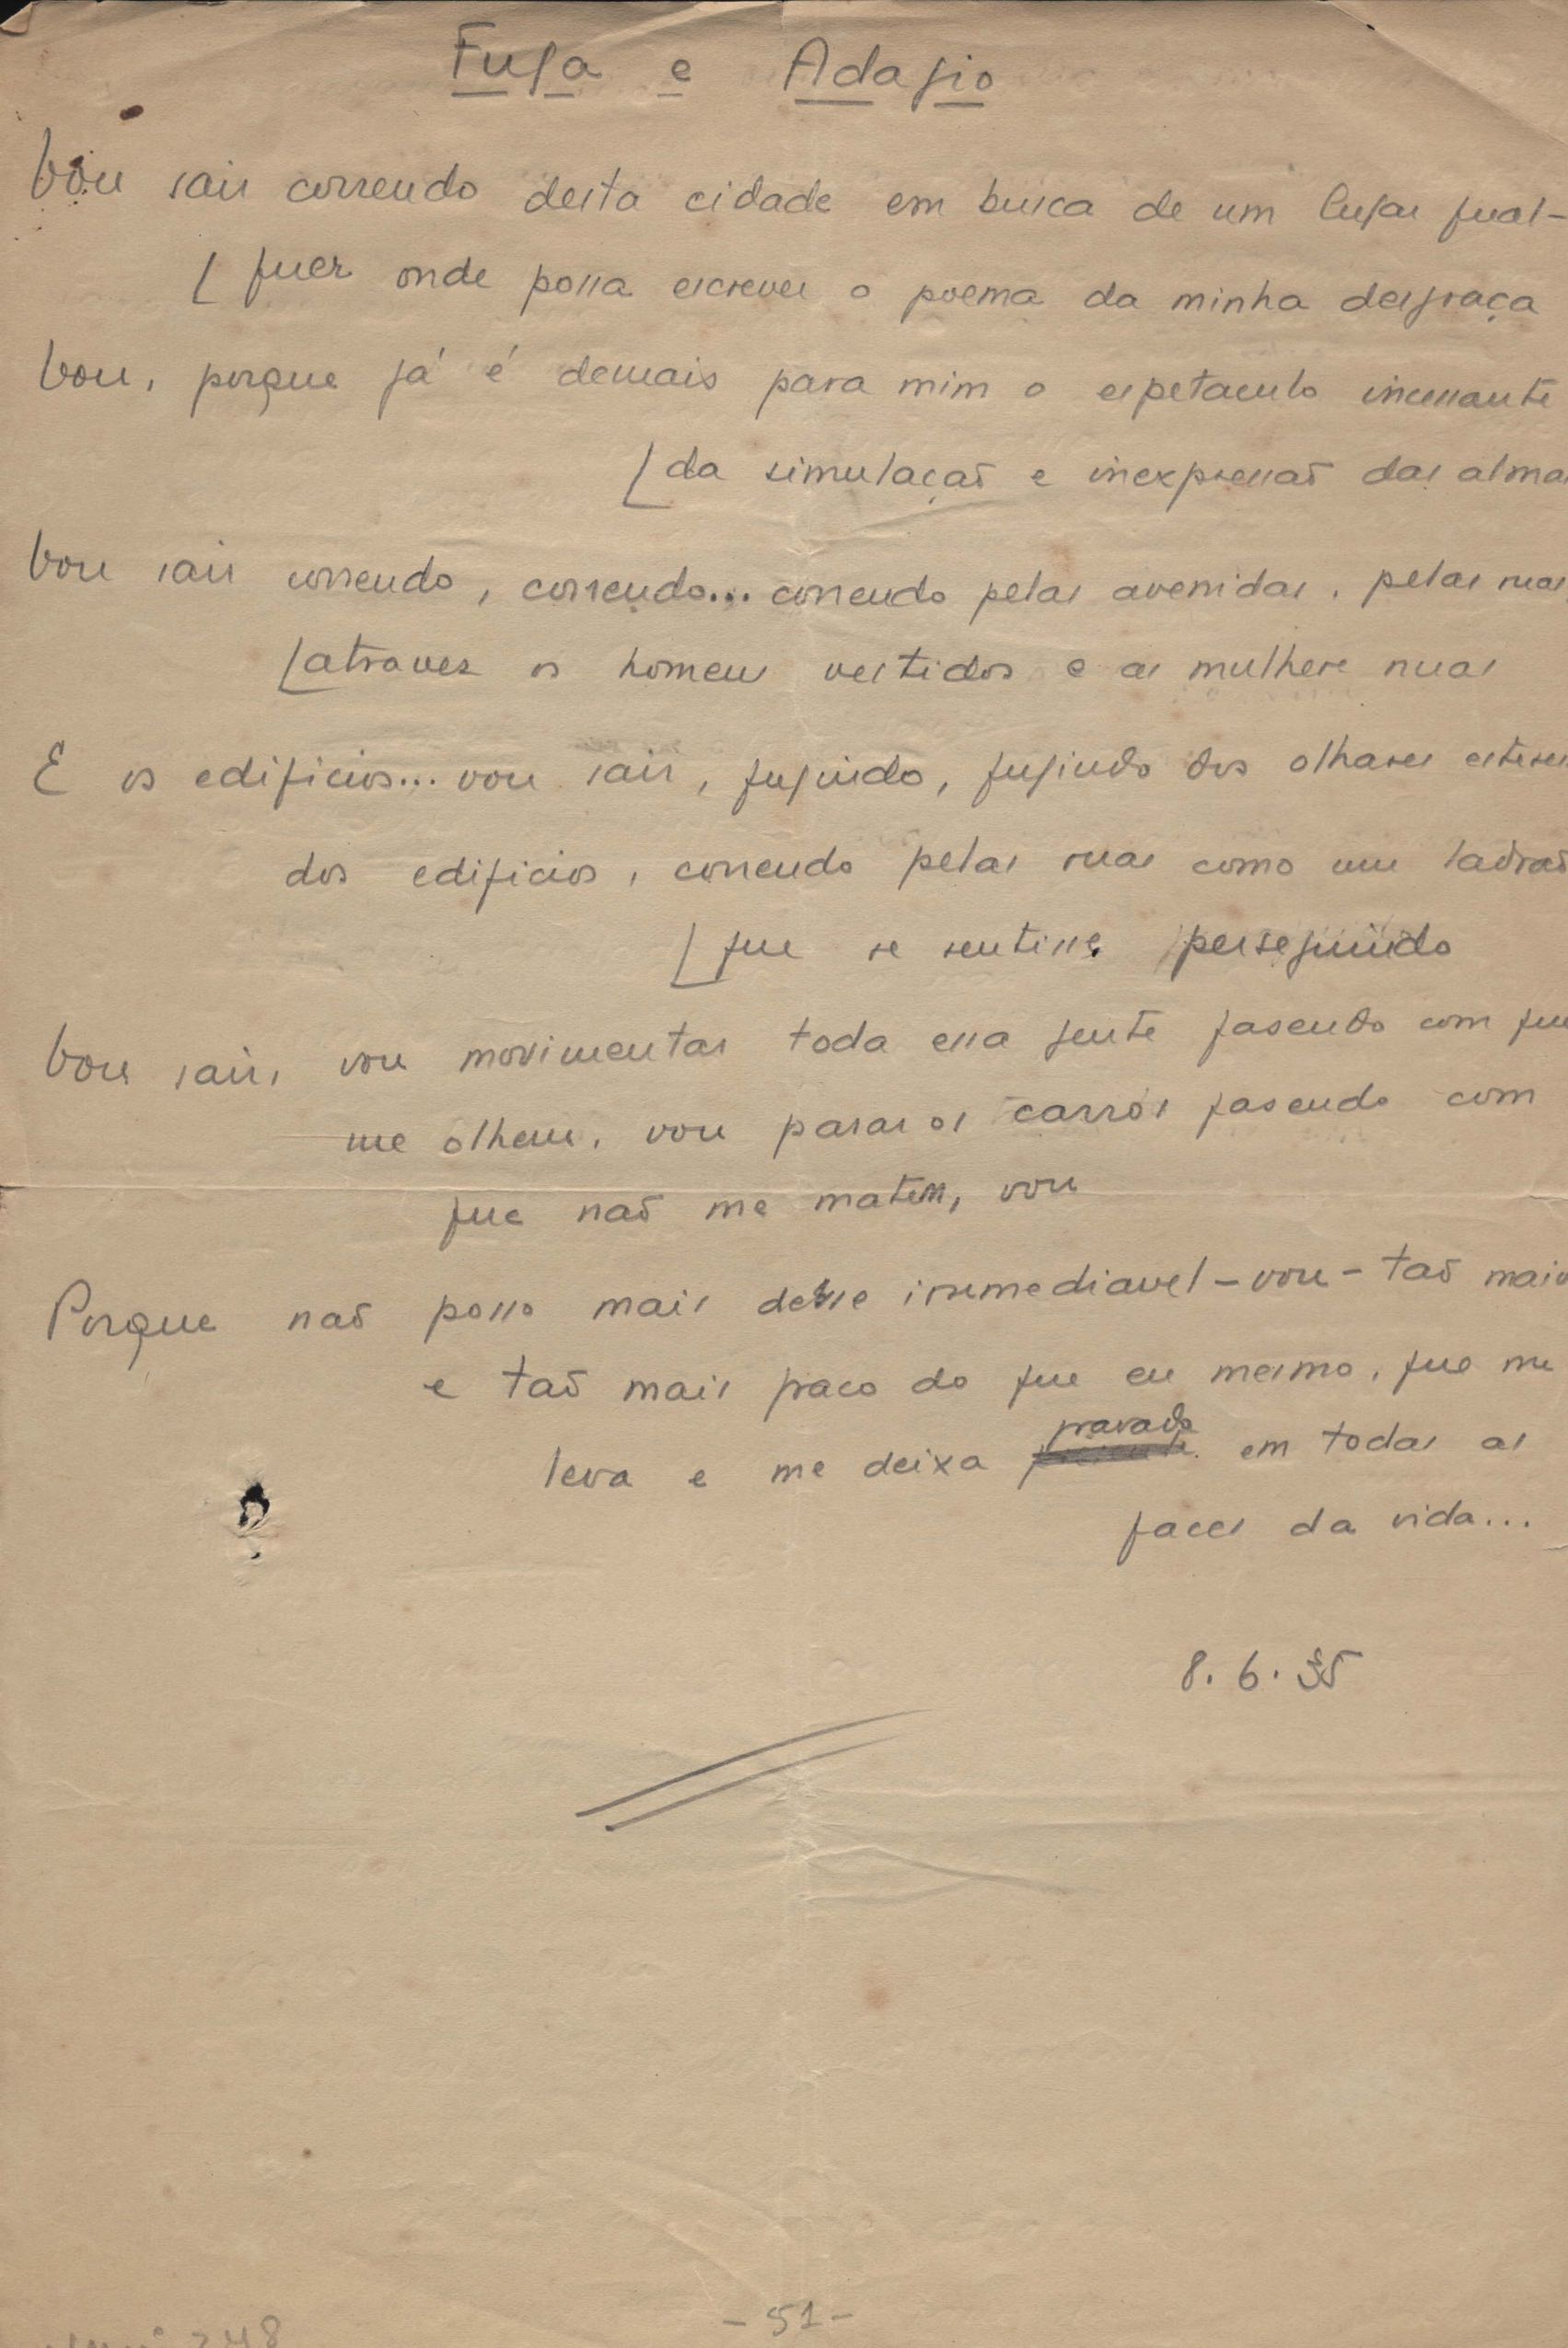 Fuga e Adagio
Vou sair correndo desta cidade em busca de um lugar qual-
[quer onde possa escrever o poema da minha desgraça
Vou, porque já é demais para mim o espetaculo incessante
[da simulação e inexpressão das almas
Vou sair correndo, correndo... correndo pelas avenidas, pelas ruas,
[atravez os homens vestidos e as mulhere nuas
E os edificios... vou sair, fugindo, fugindo dos olhares estereis
dos edificios, correndo pelas ruas como um ladrão
[que se sentisse perseguido
Vou sair, vou movimentar toda essa gente fasendo com que
me olhem, vou parar os carros fasendo com
que não me matem, vou
Porque não posso mais desse irremediavel - vou - tão maior
e tão mais fraco do que eu mesmo, que me
leva e me deixa gravado em todas as
faces da vida...
8.6.35
- 51 -
248